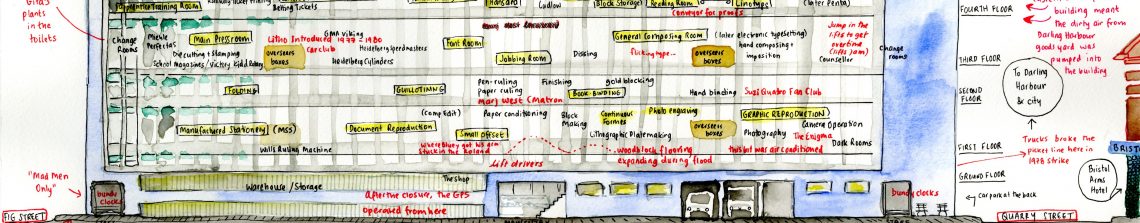 Gita's
plants
in the
toilets
Apprentice Training Room
Betting Tickets
Hansard
Ludlow
Block Storage
Reading Room
Linotype
(later Penta)
Conveyor for proofs
Change
Rooms
Miehle
Perfectas
Main Pressroom
Die cutting + Stamping
Litho Introduced
1977 - 1980
GMA Viking
Car club
overseers
boxes
Heidelberg Speedmasters
Heidelberg Cylinders
Font Room
Jobbing Room
Dissing
General Composing Room
(later electronic typesetting)
hand composing +
imposition
Flicking type...
overseers
boxes
Jump in the
lifts to get
overtime
(lifts jam)
Counsellor
Change
rooms
FOLDING
GUILLOTINING
Pen-ruling
paper ruling
Marj West (Matron)
Finishing
gold blocking
BOOK-BINDING
Hand binding
Suzi Quatro Fan Club
Manufactured Stationery
(MSS)
(Comp Edit)
Document Reproduction
Paper conditioning
Small Offset
Block
Making
Continuous
Formes
Photo engraving
Lithographic Platemaking
overseers
boxes
GRAPHIC REPRODUCTION
Camera Operation
Photography
The Enigma
Dark Rooms
Wills Ruling Machine
Where Bluey got his arm
stuck in the Roland
Woodblock flooring
expanding during flood
this bit was air conditioned
Lift drivers
"Mad Men
Only"
bundy
clocks
Warehouse / Storage
The Shop
After the closure, the GPS
operated from here
bundy clocks
FIG STREET
FOURTH FLOOR
building meant
the dirty air from
Darling Harbour
goods yard was
pumped into
the building
THIRD FLOOR
SECOND
FLOOR
To Darling
Harbour
& city
FIRST FLOOR
Trucks broke the
picket line here in
1978 strike
GROUND FLOOR
Car park at the back
Bristol
Arms
Hotel
QUARRY STREET